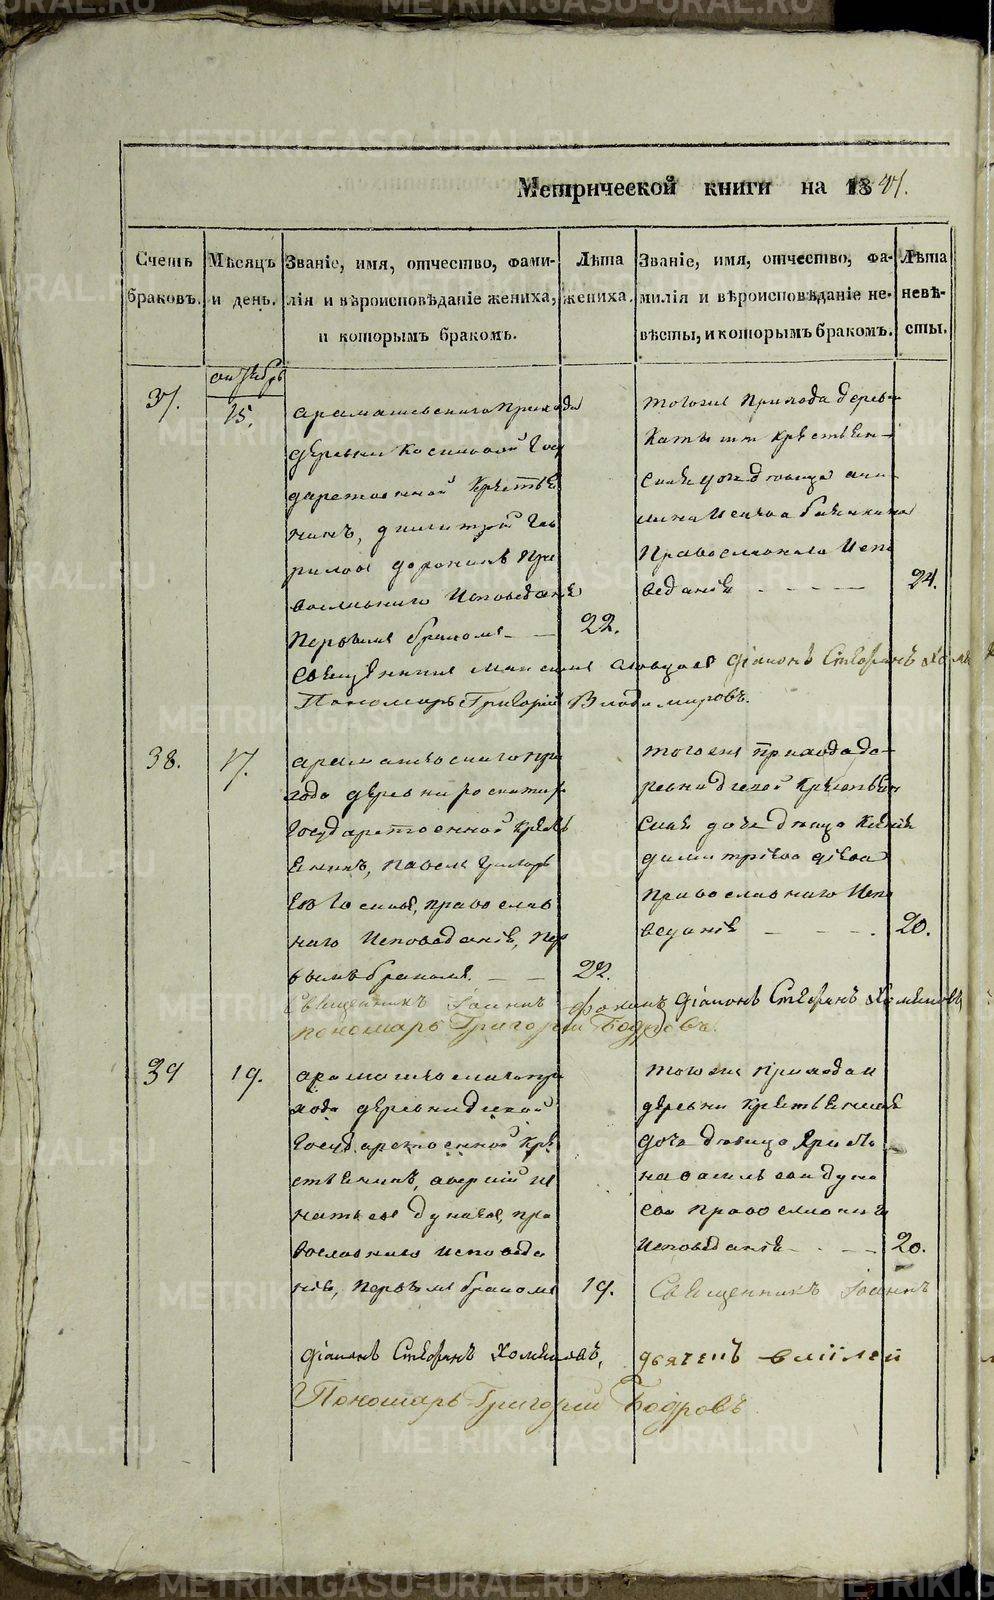 METRIKI.GASO-URAL.RU
Метрической книги на 1841.
Счетъ браковъ.
Мѣсяцъ и день.
Званіе, имя, отчество, фами-
лія и вѣроисповѣданіе жениха,
и которымъ бракомъ.
Лѣта
жениха.
Званіе, имя, отчество, фа-
милія и вѣроисповѣданіе не-
вѣсты, и которымъ бракомъ.
Лѣта
невѣ-
сты.
октябрь
37.
15.
арамашевскаго Прихода
деревни Косиковой Госу
дарственной Крестья
нинъ, дмитрій Гав
риловъ доронинъ Пра
вославнаго Исповеданія
Первымъ бракомъ
22.
тогоже Прихода дерев
крестьян-
ская дочь девица
Православнаго Испо
веданія
24.
Священникъ діаконъ Стефанъ
Пономарь Григорій Владимировъ.
38.
17.
арамашевскаго при
хода деревни
Государственной крестья
нинъ, Павелъ Григорь
православ
наго Исповеданія, Пер
вымъ бракомъ.
22.
тогоже прихода де-
ревни крестьян
ская дочь девица Ксенія
димитріева
православнаго Испо
веданія
20.
Священникъ Іоаннъ Фокинъ діаконъ Стефанъ Хомяковъ,
пономарь Григорій Бодровъ.
39
19.
арамашевскаго при
хода деревни
Государственной Кре
стьянинъ, аверкій Иг
натьевъ дунаевъ, пра
вославнаго исповеда
нія, Первымъ бракомъ
19.
тогоже прихода и
деревни крестьянская
дочь девица Христи
на васильева дуна
ева православнаго
Исповеданія
20.
Священникъ Іоаннъ
діаконъ Стефанъ Хомяковъ, дьячекъ василей
Пономарь Григорій Бодровъ.